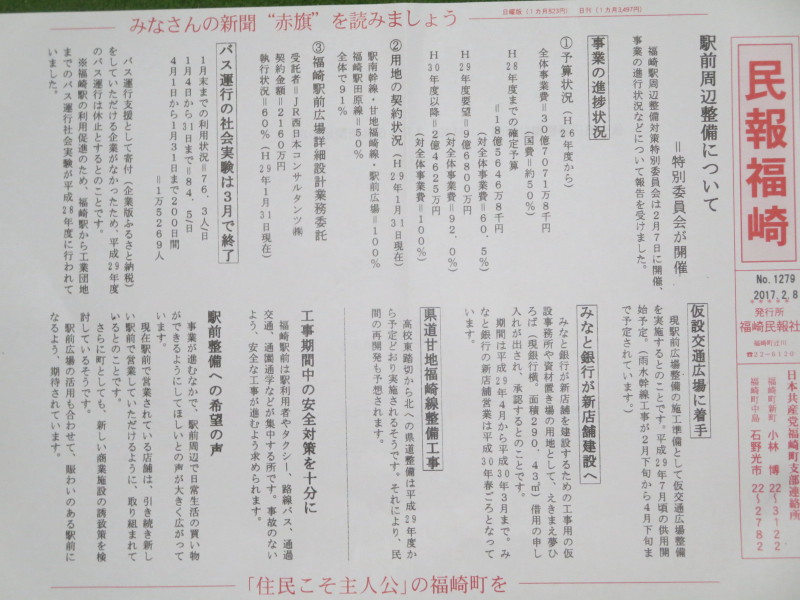 みなさんの新聞“赤旗”を読みましょう
日曜版(1カ月823円) 日刊(1カ月3,497円)
民報福崎
No. 1279
2017. 2. 8
発行所
福崎民報社
福崎町辻川
☎22-6120
日本共産党福崎町支部連絡所
福崎町新町 小林 博 22〜3122
福崎町中島 石野光市 22〜2782
駅前周辺整備について
=特別委員会が開催
福崎駅周辺整備対策特別委員会は2月7日に開催、
事業の進行状況などについて報告を受けました。
事業の進捗状況
①予算状況(H26年度から)
全体事業費=30億7071万8千円
(国費=約50%)
H28年度までの確定予算
=18億5646万8千円
(対全体事業費=60.5%)
H29年度要望=9億6800万円
(対全体事業費=92.0%)
H30年度以降=2億4625万円
(対全体事業費=100%)
②用地の契約状況(H29年1月31日現在)
駅南幹線・甘地福崎線・駅前広場=100%
福崎駅田原線=50%
全体で91%
③福崎駅前広場詳細設計業務委託
受託者=JR西日本コンサルタンツ㈱
契約金額=2160万円
執行状況=60%(H29年1月31日現在)
バス運行の社会実験は3月で終了
1月末までの利用状況=76.3人/日
1月4日から31日まで=84.5/日
4月1日から1月31日まで200日間
=1万5269人
バス運行支援として寄付(企業版ふるさと納税)
をしていただける企業がなかったため、平成29年度
のバス運行は休止とするとのことです。
※福崎駅の利用促進のため、福崎駅から工業団地
までのバス運行社会実験が平成28年度に行われて
いました。
仮設交通広場に着手
現駅前広場整備の施工準備として仮交通広場整備
を実施するとのことです。平成29年7月頃の供用開
始予定。(雨水幹線工事が2月下旬から4月下旬ま
で予定されています。)
みなと銀行が新店舗建設へ
みなと銀行が新店舗を建設するための工事用の仮
設事務所や資材置き場の用地として、えきまえ夢ひ
ろば(現銀行横。面積290.43㎡)借用の申し
入れが出され、承認するとのことです。
期間は平成29年4月から平成30年3月まで。み
なと銀行の新店舗営業は平成30年春ごろとなって
います。
県道甘地福崎線整備工事
高校東踏切から北への県道整備は平成29年度か
ら予定どおり実施されるそうです。それにより、民
間の再開発も予想されます。
工事期間中の安全対策を十分に
福崎駅前は駅利用者やタクシー、路線バス、通過
交通、通園通学などが集中する所です。事故のない
よう、安全な工事が進むよう求められます。
駅前整備への希望の声
事業が進むなかで、駅前周辺で日常生活の買い物
ができるようにしてほしいとの声が大きく広がって
います。
現在駅前で営業されている店舗は、引き続き新し
い駅前で営業していただけるように、取り組まれて
いるとのことです。
さらに町としても、新しい商業施設の誘致策を検
討しているそうです。
駅前広場の活用も合わせて、賑わいのある駅前に
なるよう、期待されています。
「住民こそ主人公」の福崎町を